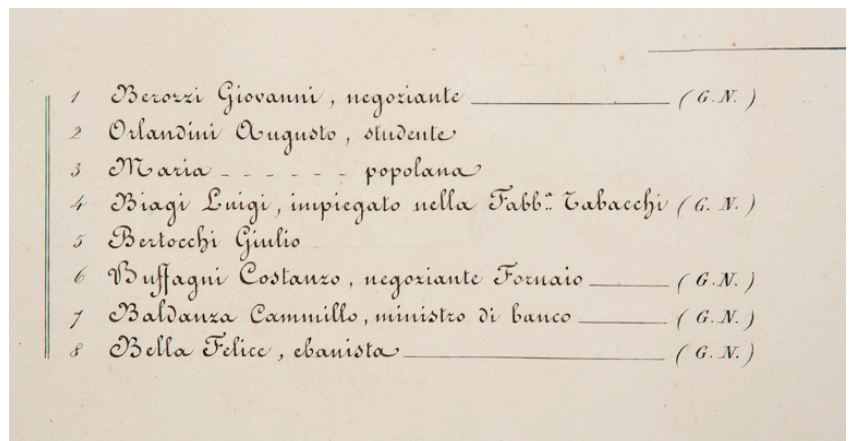 1 Berozzi Giovanni, negoziante ________ (G. N.)
2 Orlandini Augusto, studente
3 Maria - - - - - - popolana
4 Biagi Luigi, impiegato nella Fabb.ª Tabacchi (G. N.)
5 Bertocchi Giulio
6 Buffagni Costanzo, negoziante Fornaio ________ (G. N.)
7 Baldanza Cammillo, ministro di banco ________ (G. N.)
8 Bella Felice, ebanista ________ (G. N.)